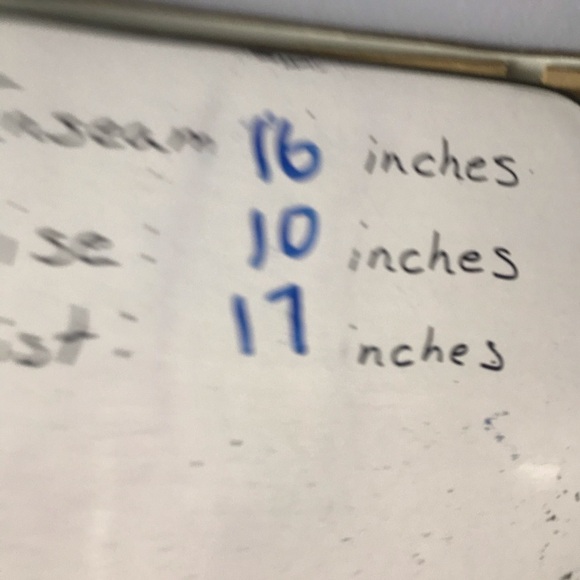 nseam 16 inches
ise: 10 inches
ist: 17 inches